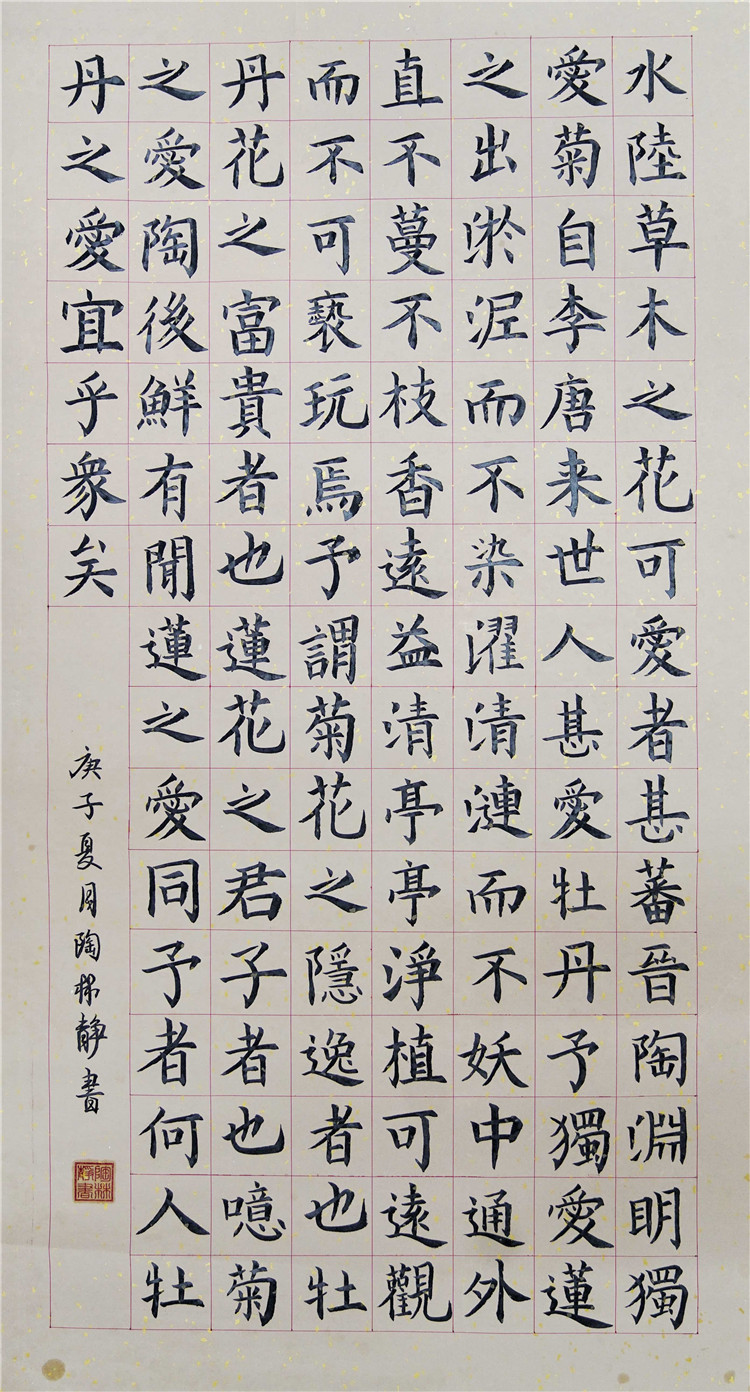 水陸草木之花可愛者甚蕃晉陶淵明獨
愛菊自李唐来世人甚愛牡丹予獨愛蓮
之出淤泥而不染濯清漣而不妖中通外
直不蔓不枝香遠益清亭亭淨植可遠觀
而不可褻玩焉予謂菊花之隱逸者也牡
丹花之富貴者也蓮花之君子者也噫菊
之愛陶後鮮有聞蓮之愛同予者何人牡
丹之愛宜乎衆矣
庚子夏月陶林静書
陶林静書